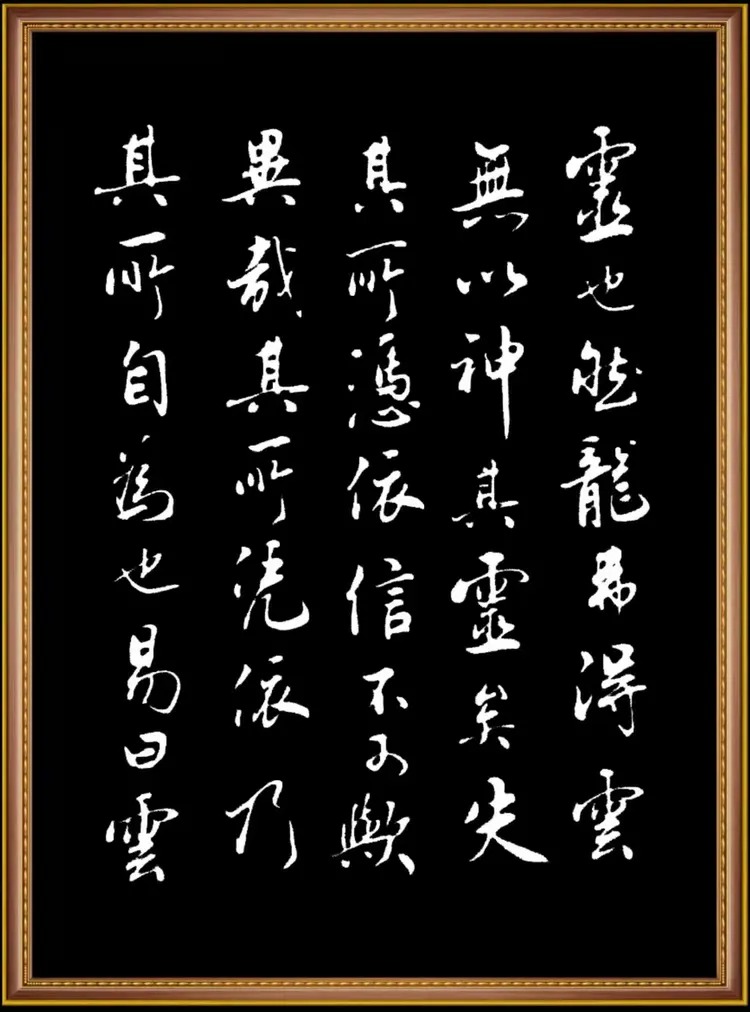 靈也然龍弗得雲
無以神其靈矣失
其所憑依信不可歟
異哉其所凭依乃
其所自為也易曰雲